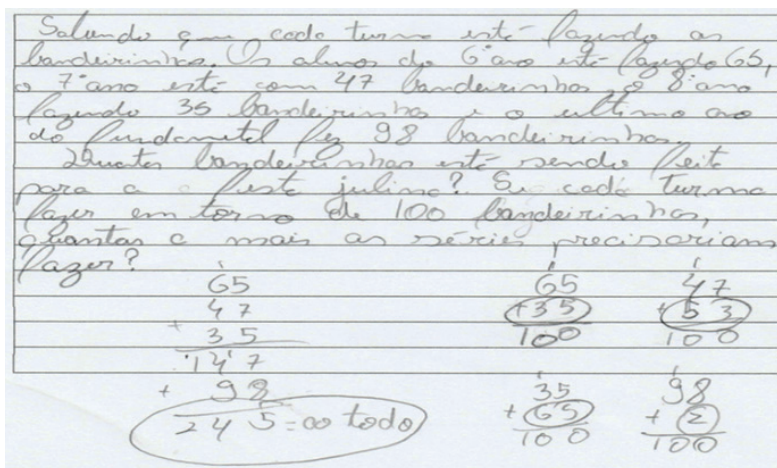 Sabendo que cada turma está fazendo as
bandeirinhas. Os alunos do 6º ano está fazendo 65,
o 7º ano está com 47 bandeirinhas, o 8º ano
fazendo 35 bandeirinhas e o ultimo ano
do fundamental fez 98 bandeirinhas.
Quantas bandeirinhas está sendo feita
para a festa julina? Se cada turma
fazer em torno de 100 bandeirinhas,
quantas a mais as séries precisariam
fazer?
65
47
+ 35
147
+ 98
245 = ao todo
65
+35
100
47
+53
100
35
+65
100
98
+2
100